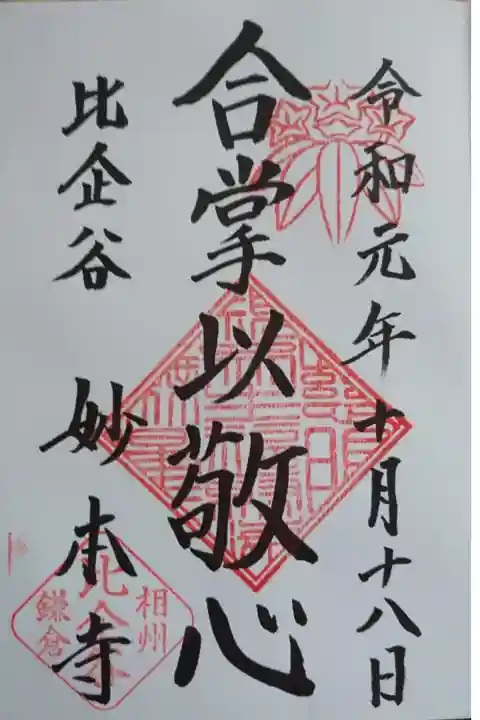 令和元年十月十八日
合掌以敬心
比企谷
妙本寺
相州
鎌倉